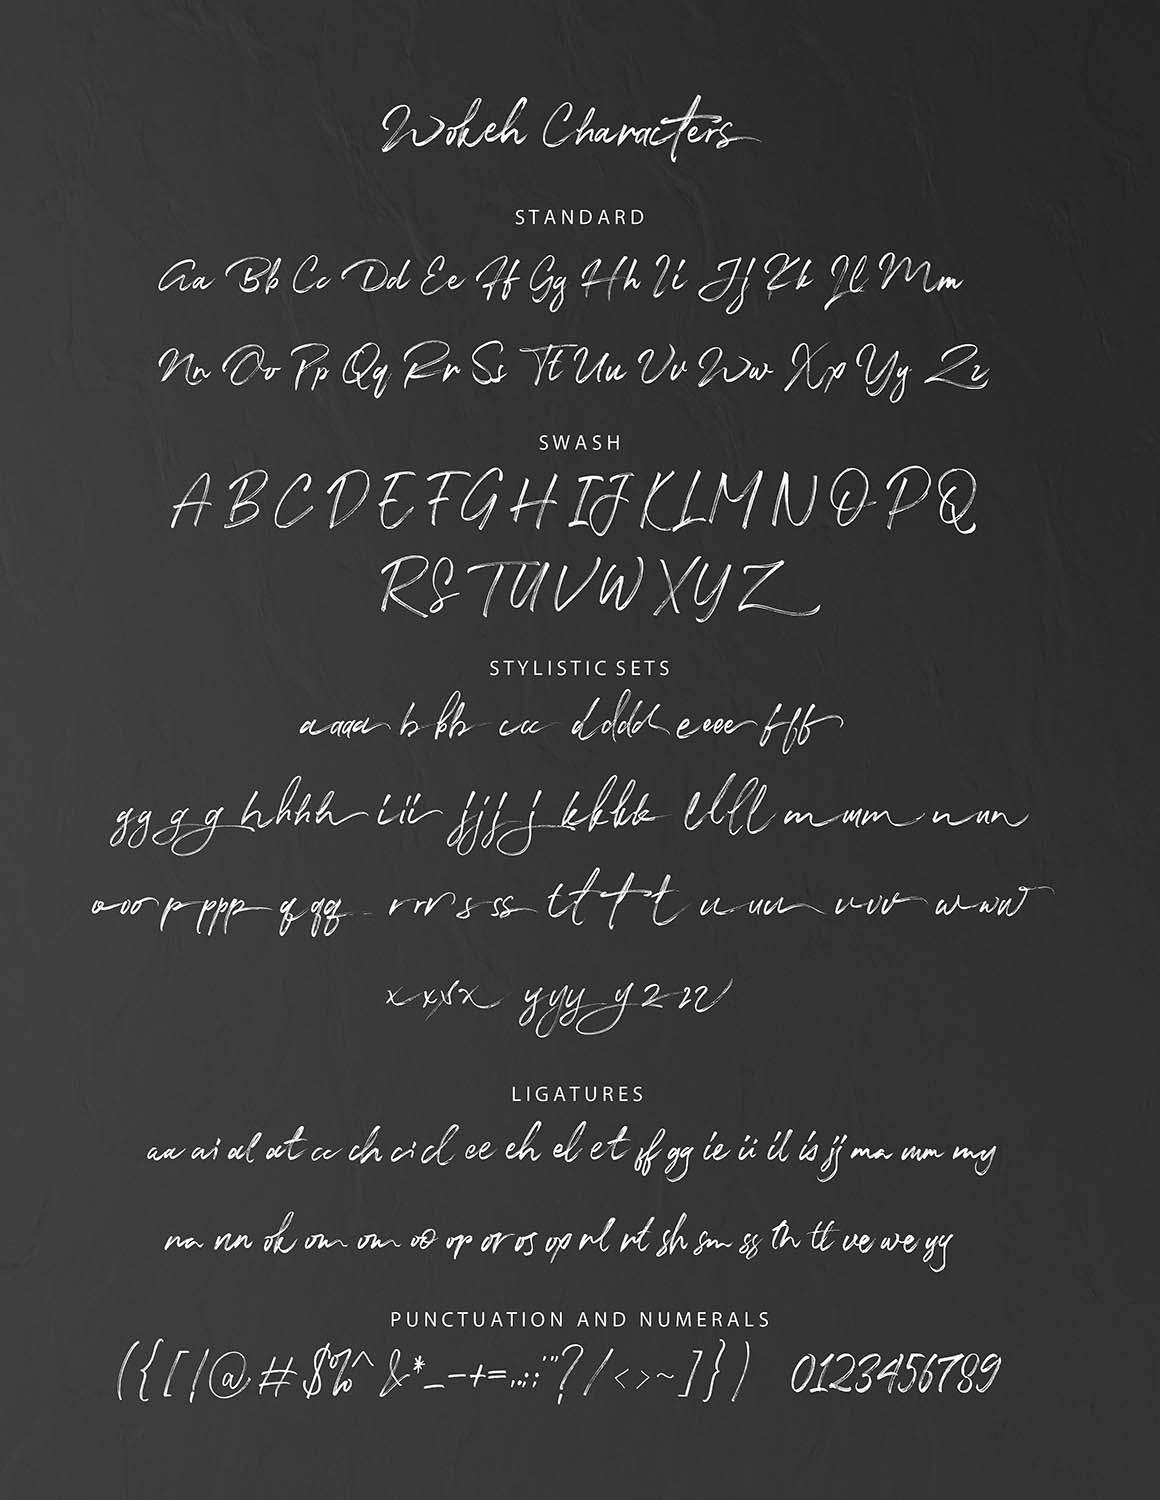 Wokeh Characters
STANDARD
Aa Bb Cc Dd Ee Ff Gg Hh Ii Jj Kk Ll Mm
Nn Oo Pp Qq Rr Ss Tt Uu Vv Ww Xx Yy Zz
SWASH
A B C D E F G H I J K L M N O P Q
R S T U V W X Y Z
STYLISTIC SETS
aaaa bbb ccc dddd eeee fff
gggg hhhh iii jjjj kkkk llll mmm nnn
ooo pppp qqq rrr sss tttt uuu vvv www
xxxx yyyy zzz
LIGATURES
aa ai al at cc ch ci cl ee eh el et ff gg ie ii il is jj ma mm my
na nn ok om on oo op or os ox rl rt sh sm ss th tt ve we yy
PUNCTUATION AND NUMERALS
({[!@#$%^&*_-+=,.:;'"?/<>~]}) 0123456789